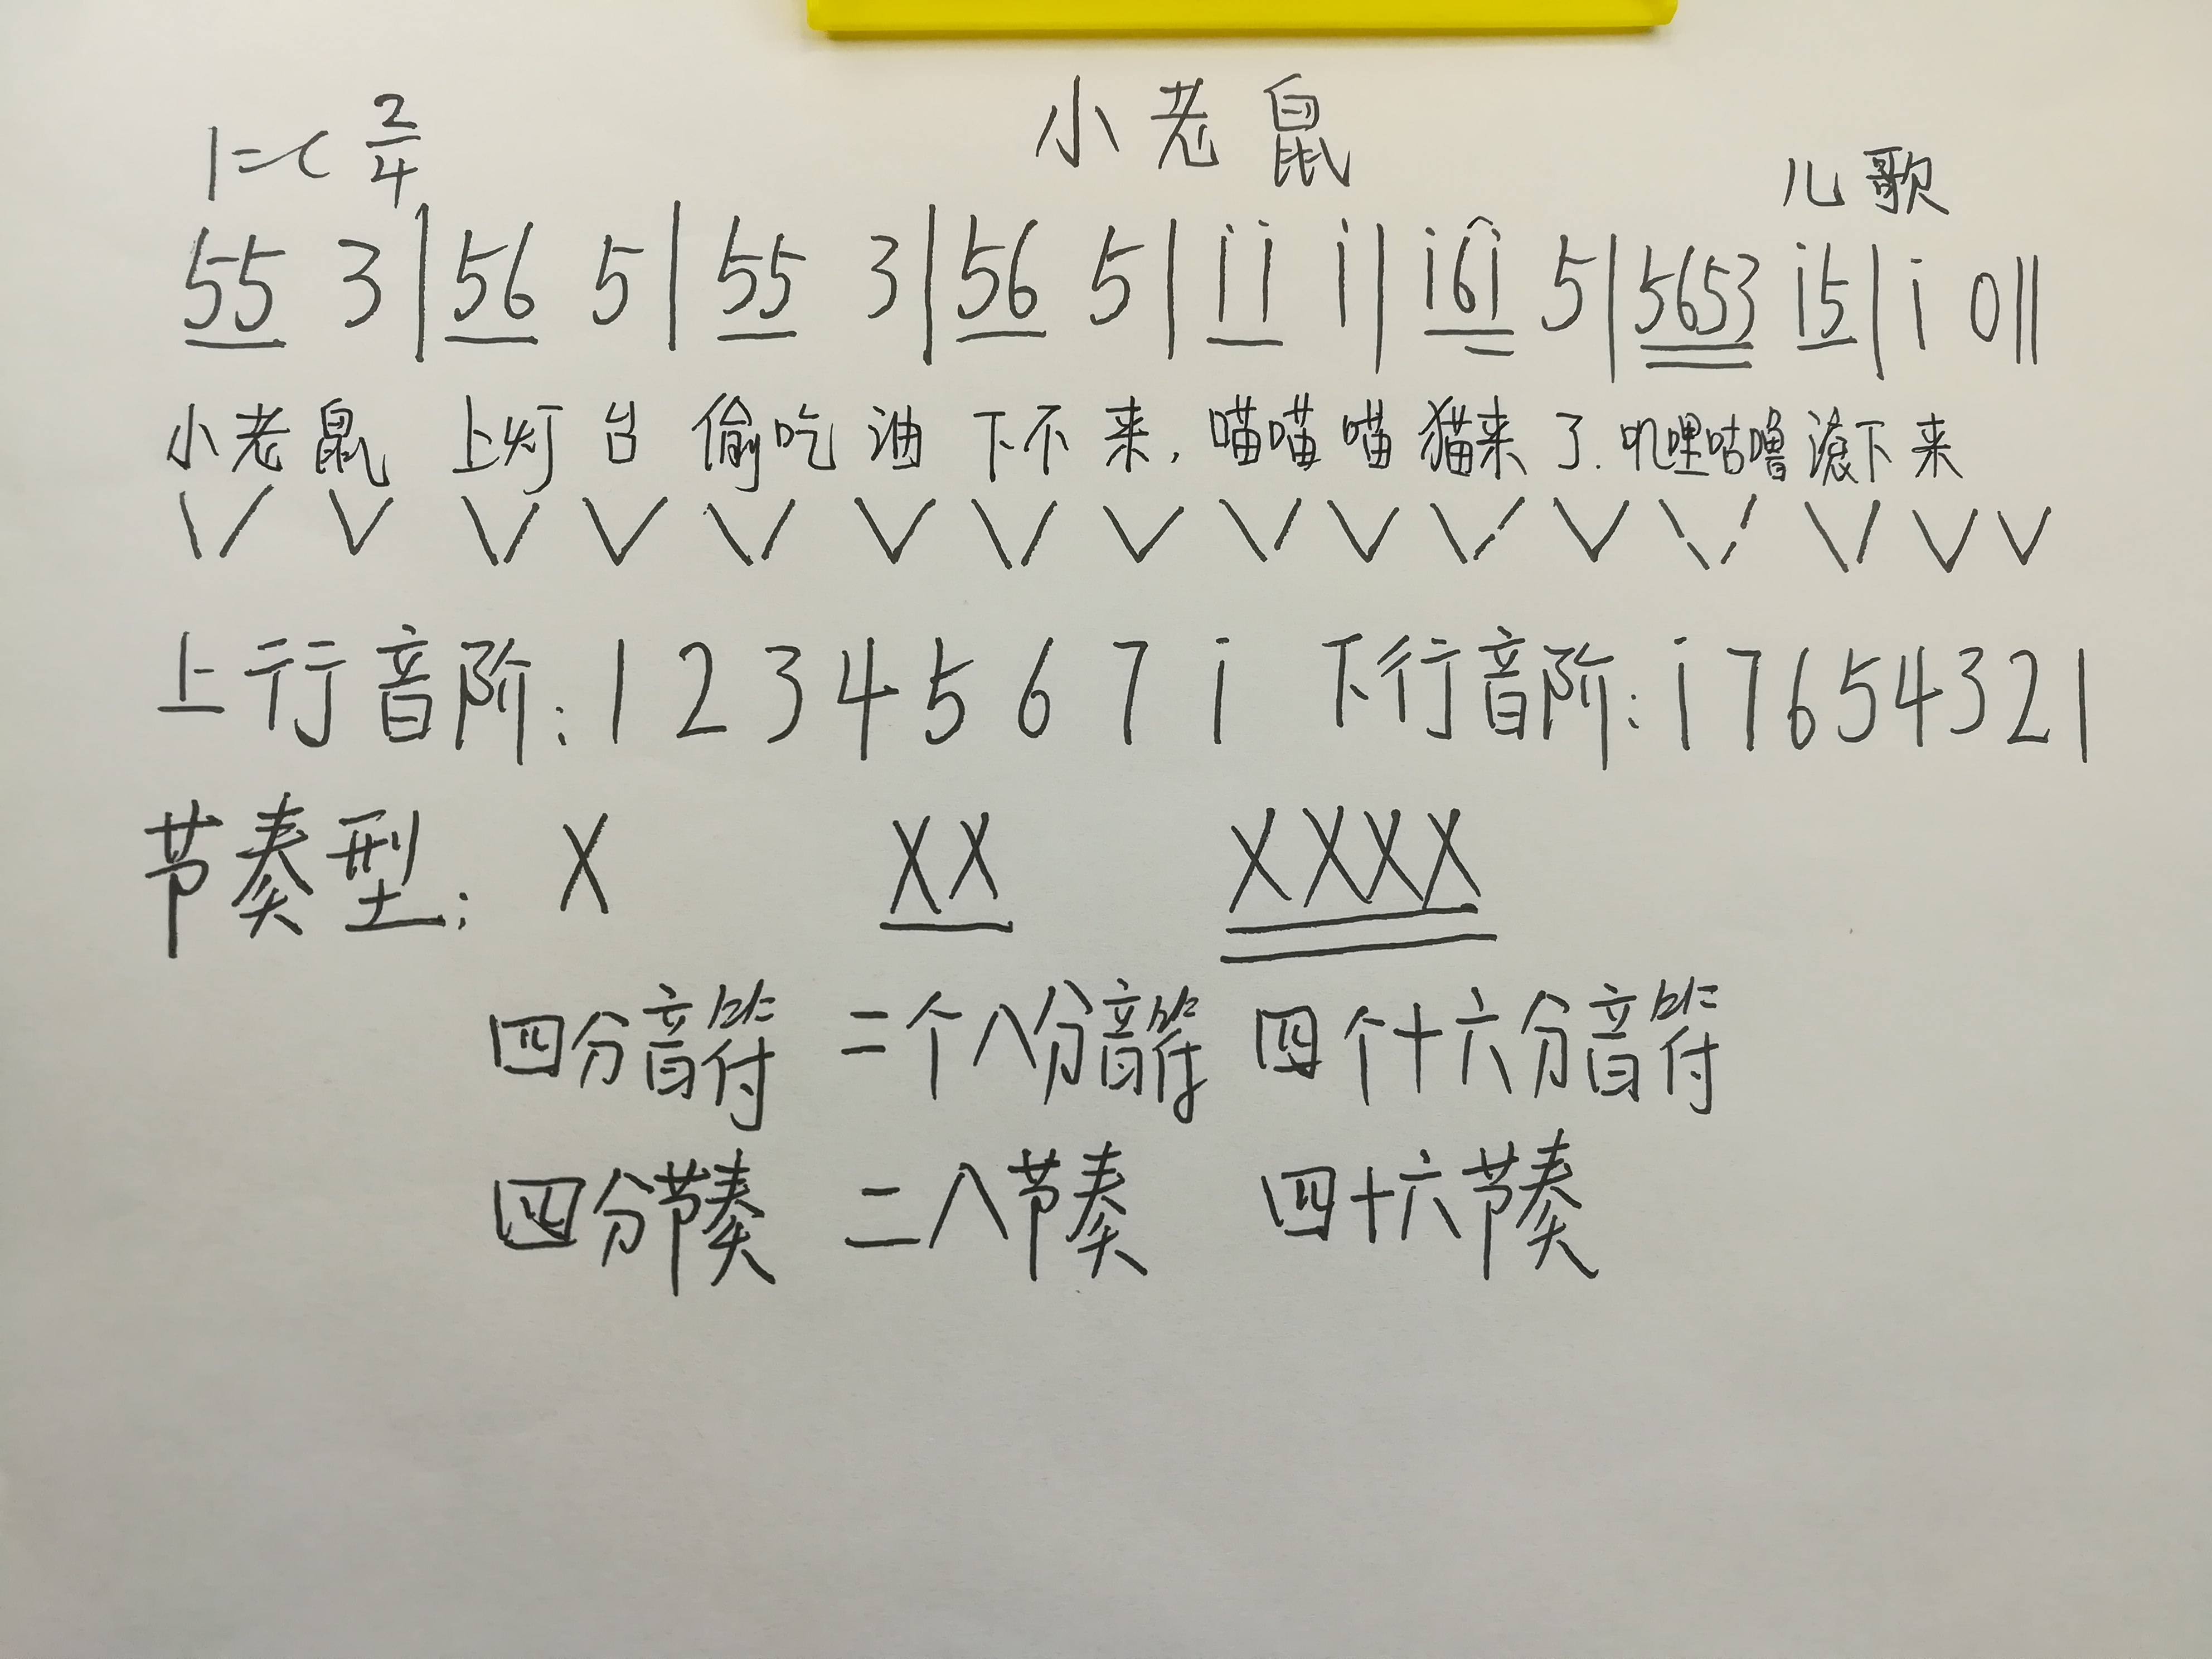 小老鼠
1=C 2/4
儿歌
55 3|56 5|55 3|56 5|i̇i̇ i̇|i̇6i̇ 5|5653 i̇5|i̇ 0‖
小老鼠 上灯台 偷吃油 下不来，喵喵喵 猫来了.叽哩咕噜滚下来
上行音阶:1 2 3 4 5 6 7 i̇ 下行音阶:i̇ 7 6 5 4 3 2 1
节奏型: X XX XXXX
四分音符 二个八分音符 四个十六分音符
四分节奏 二八节奏 四十六节奏